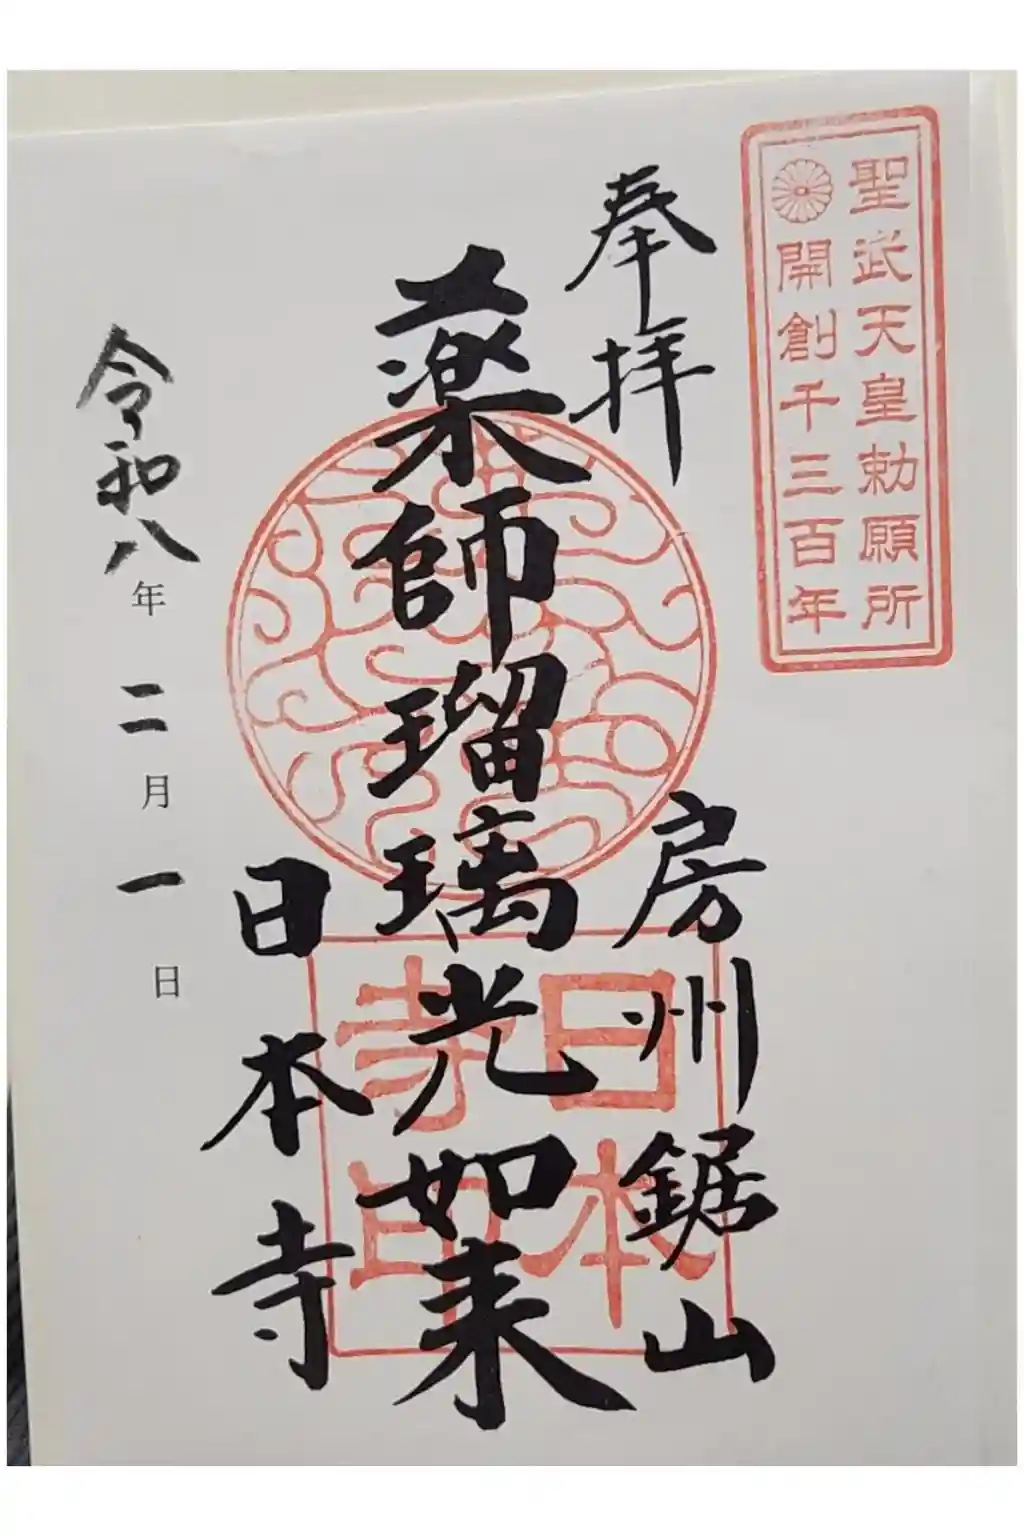 聖武天皇勅願所
開創千三百年
奉拝
房州鋸山
薬師瑠璃光如来
日本寺印
日本寺
令和八年二月一日